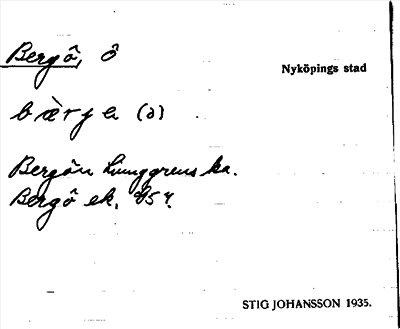 Bergö, ö
Nyköpings stad
bær̀ja (ə)
Bergön Ljunggrens ka.
Bergö ek.
STIG JOHANSSON 1935.